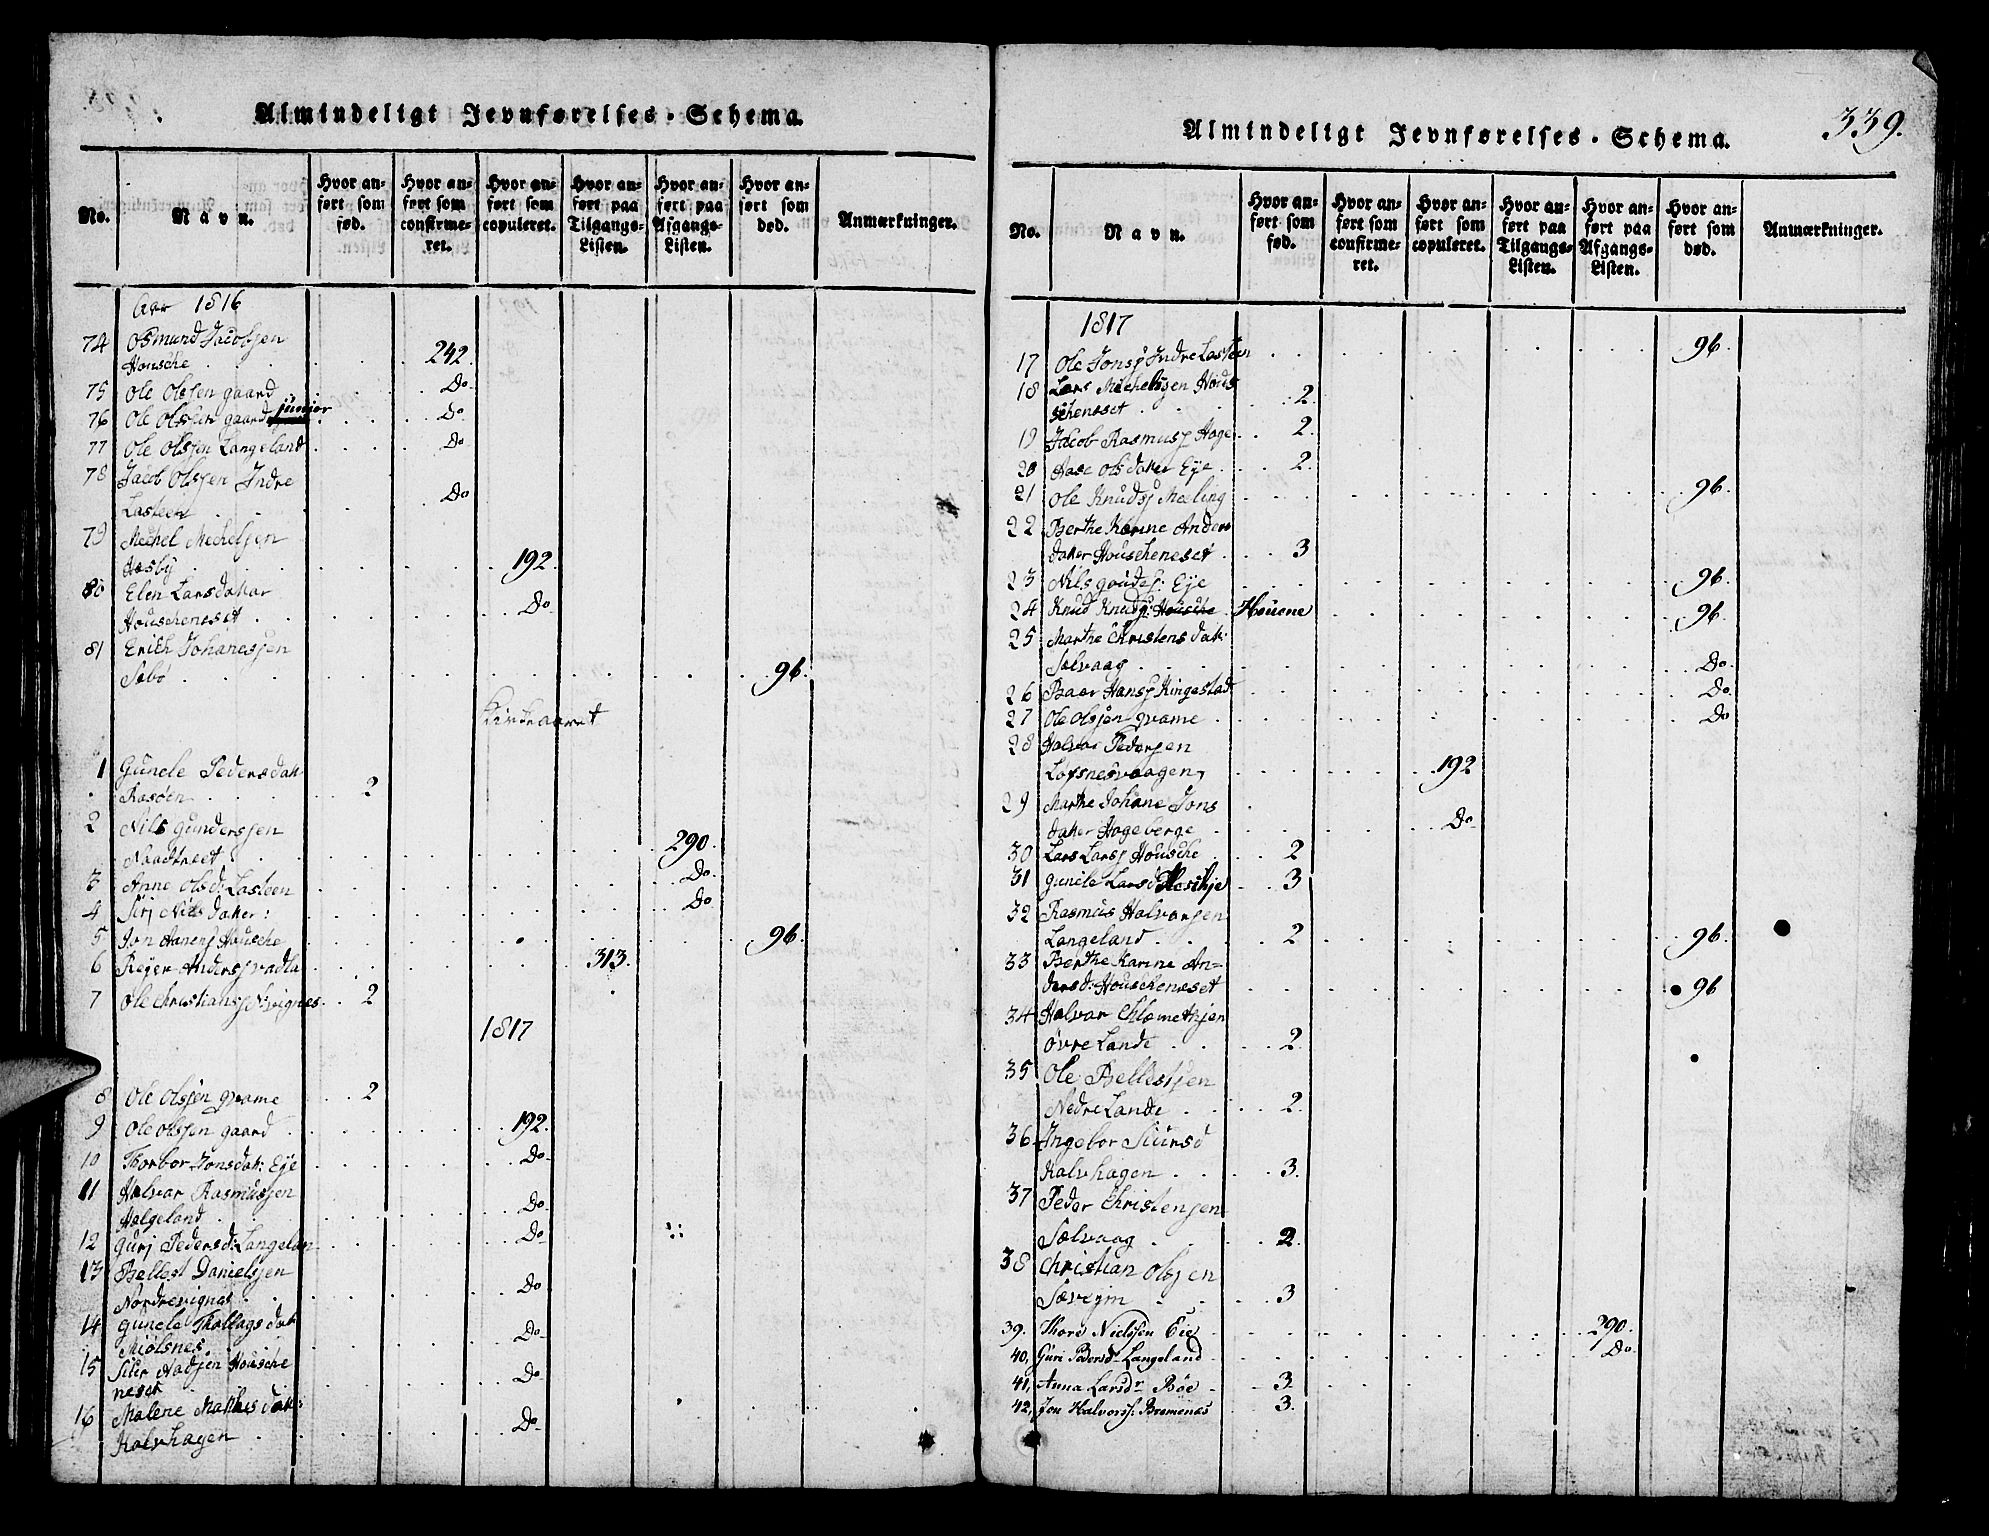 Almindeligt Jevnførelses-Schema.
No.
Navn.
Hvor anført som fød.
Hvor anført som confirmeret.
Hvor anført som copuleret.
Hvor anført paa Tilgangs-Listen.
Hvor anført paa Afgangs-Listen.
Hvor anført som død.
Anmærkninger.
Aar 1816
74 Osmund Jacobsen
Housche 242
75 Ole Olsen gaard Do
76 Ole Olssen gaard junior Do
77 Ole Olssen Langeland Do
78 Jacob Olssen Indre
Lasteen Do
79 Mechel Mechelsen
Hæsby 192
80 Elen Larsdater
Houscheneset Do
81 Erich Johanessen
Søbø 96
Kirkeaaret
1 Guncle Pedersdat
Rasøen 2
2 Nils Gunderssen
290
3 Anne Olsd: Lasteen Do
4 Siri Nilsdater: Do
5 Jon Housche 96
6 Rejer Anders vadla 313
7 Ole Christians vignes 2
1817
8 Ole Olsen qvame 2
9 Ole olssen gaard 192
10 Thorbor Jonsdat: Eye Do
11 Halvor Rasmussen
Halgeland Do
12 Gurj Pedersd: Langelan Do
13 Bellest Danielssen
Nordrevignes Do
14 Guncle Thollags dat
Miølsnes Do
15 Housche
neset Do
16 Malene Mathis dat:
Kalvhagen Do
339.
Almindeligt Jevnførelses-Schema.
No.
Navn.
Hvor anført som fød.
Hvor anført som confirmeret.
Hvor anført som copuleret.
Hvor anført paa Tilgangs-Listen.
Hvor anført paa Afgangs-Listen.
Hvor anført som død.
Anmærkninger.
1817
17 Ole Jons Indre Lasteen 96
18 Lars Michelsen Hous
scheneset 2
19 Jacob Rasmus Hage 2
20 Aase Olsdater Eye 2
21 Ole Knuds Mæling 96
22 Berthe Karine Anders
dater Houscheneset 3
23 Nils Eye 96
24 Knud Knuds: Housche Houene 96
25 Marthe Christens dat:
Sælvaag Do
26 Baar Hans Ringestad Do
27 Ole olsen qvame Do
28 Halvor Pedersen
Løfsnesvaagen 192
29 Marthe Johane Jons
dater Hageberge Do
30 Lars Lars Housche 2
31 guncle Larsd 3
32 Rasmus Halvorsen
Langeland 2 96
33 Berthe Karine An=
dersd: Houscheneset 96
34 Halvor Chlemetsen
øvre Lande 2
35 Ole Bellestsen
Nedre Lande 2
36 Ingebor Siursd
Kalvhagen 3
37 Peder Christensen
Sælvaag 2
38 Christian Olssen
3
39. Thore Nielssen Eie 290
40, Guri Pedersd. Langeland Do
41, Anna Larsdr Bøe 3
42, Jon Halvorss: Bremenæs 3